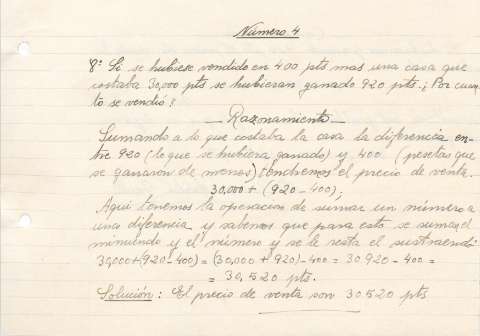 Número 4
8º Si se hubiese vendido en 400 pts mas una casa que
costaba 30,000 pts se hubieran ganado 920 pts. ¿Por cuan-
to se vendió?
- Razonamiento -
Sumando a lo que costaba la casa la diferencia en-
tre 920 (lo que se hubiera ganado) y 400 (pesetas que
se ganaron de menos) tendremos el precio de venta.
30,000 + (920 - 400).
Aqui tenemos la operación de sumar un número a
una diferencia y sabemos que para esto se suman el
minuendo y el número y se le resta el sustraendo
30,000+(920-400) = (30,000 + 920) - 400 = 30 920 - 400 =
= 30,520 pts.
Solución: El precio de venta son 30520 pts